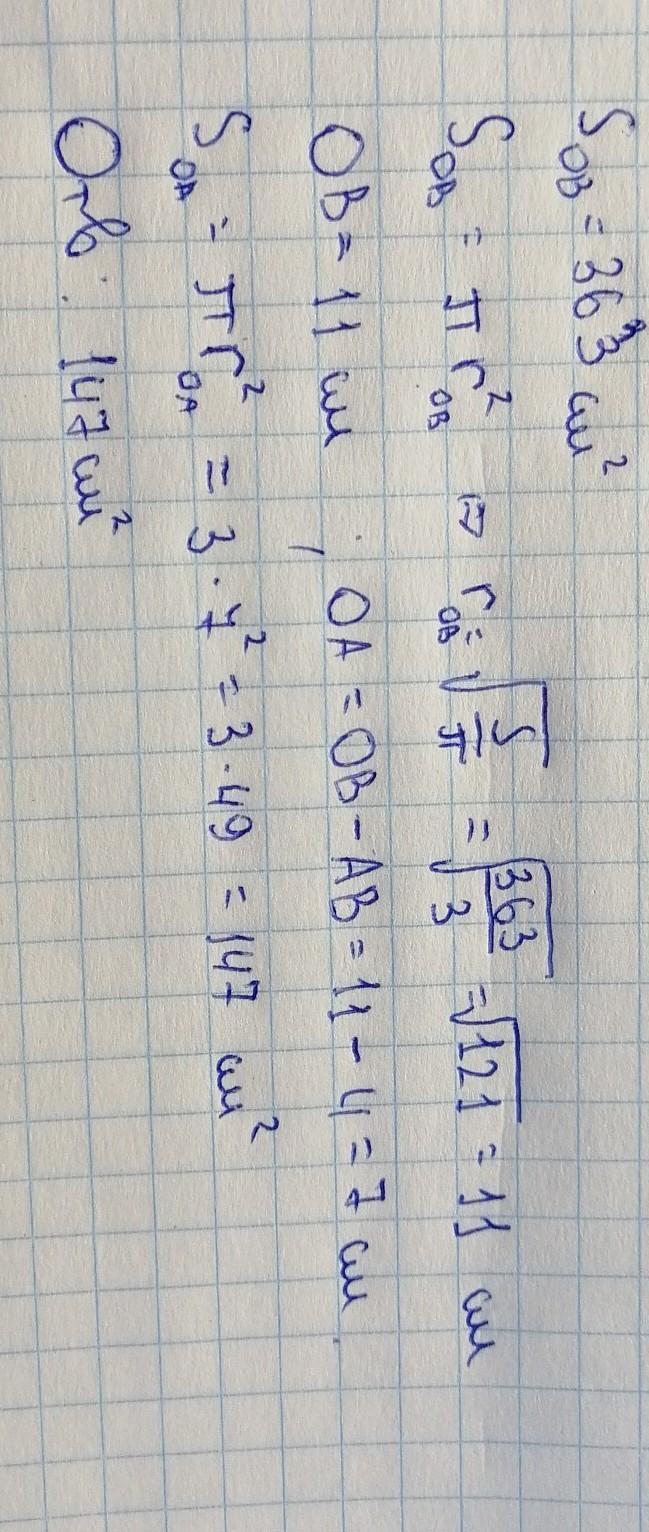 S_OB = 363 см²
S_OB = π r²_OB ⇒ r_OB = √(S/π) = √(363/3) = √121 = 11 см
OB = 11 см ; OA = OB − AB = 11 − 4 = 7 см.
S_OA = π r²_OA = 3 · 7² = 3 · 49 = 147 см²
Отв : 147 см²